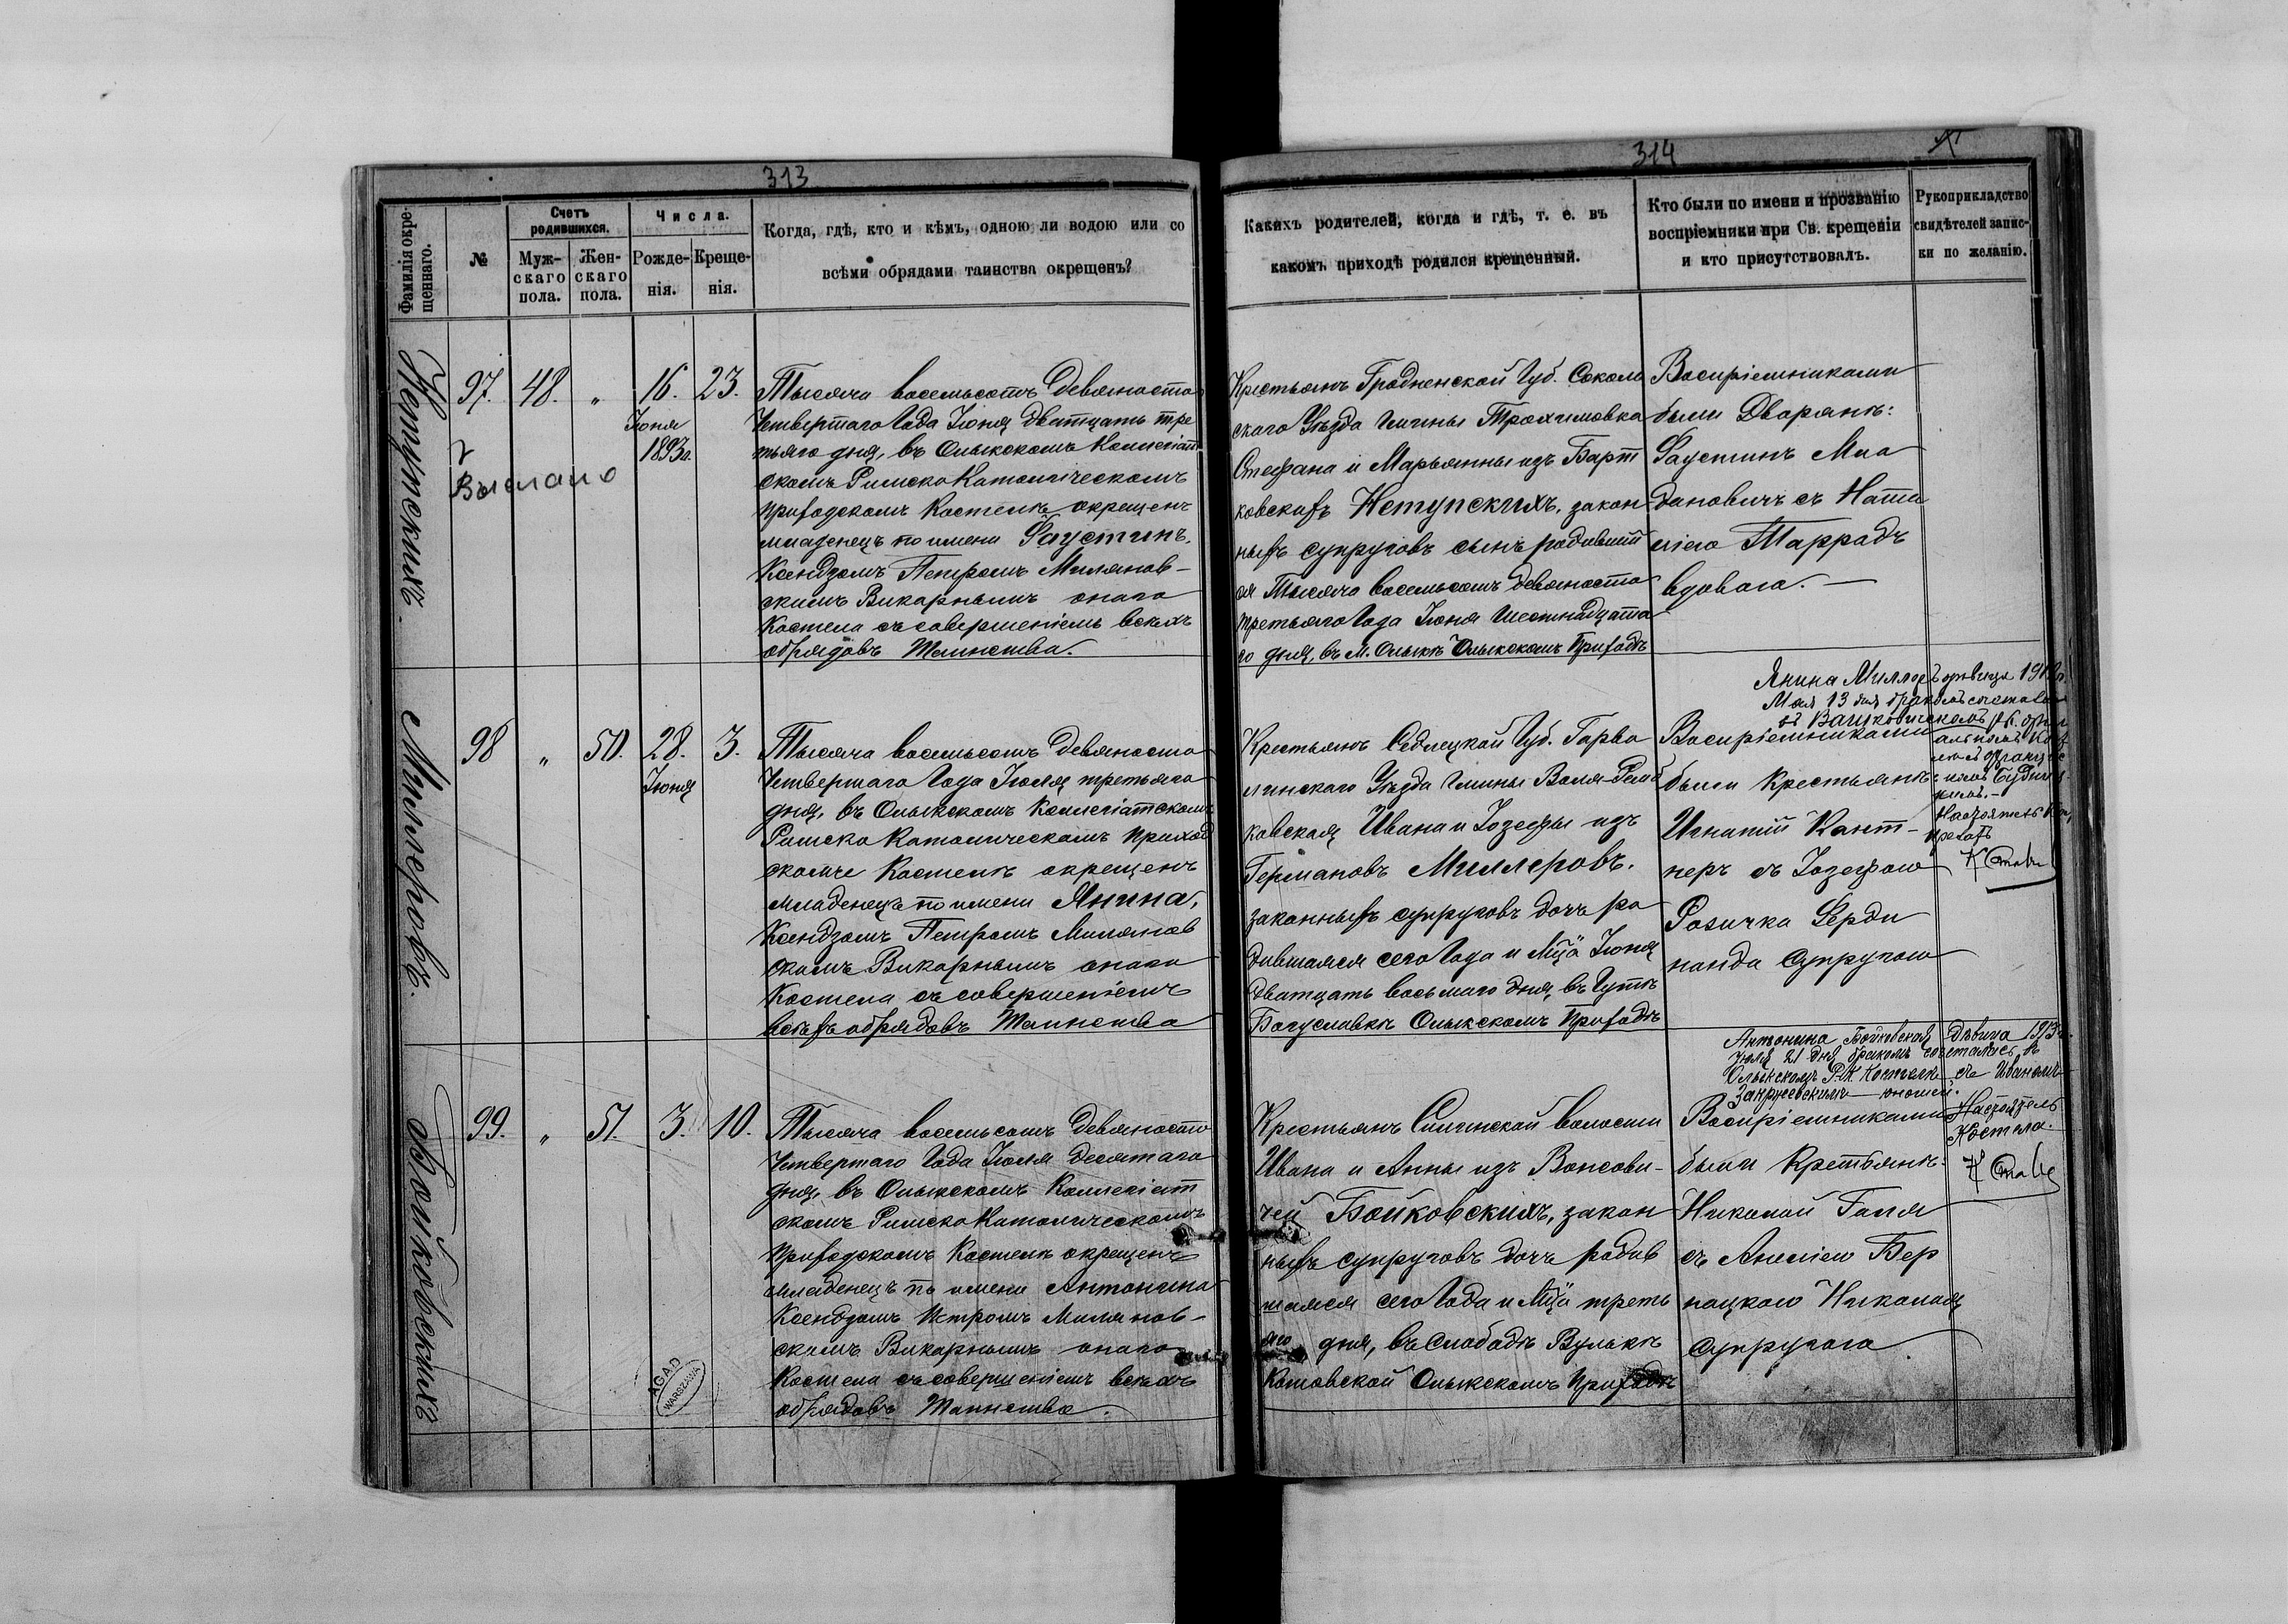 313
Фамилія окре-
щеннаго.
№
Счетъ
родившихся.
Муж-
скаго
пола.
Жен-
скаго
пола.
Числа.
Рожде-
нія.
Креще-
нія.
Когда, гдѣ, кто и кѣмъ, одною ли водою или со
всѣми обрядами таинства окрещенъ?
Нетупскихъ.
97. 48. " 16. 23.
Іюня
1893г.
Выслано
Тысяча восемьсотъ девяносто
Четвертаго Года Іюня двадцать тре
тьяго дня, въ Олыкскомъ Коллегіат
скомъ Римско Католическомъ
приходскомъ Костелѣ окрещенъ
младенецъ по имени Фаустинъ.
Ксендзомъ Петромъ Милянов-
скимъ Викарнымъ онаго
Костела съ совершеніемъ всѣхъ
обрядовъ Таинства.
Миллеровъ.
98 " 50. 28. 3.
Іюня
Тысяча восемьсотъ девяносто
Четвертаго Года Іюля третьяго
дня, въ Олыкскомъ Коллегіатскомъ
Римско Католическомъ приход
скомъ Костелѣ окрещенъ
младенецъ по имени Янина,
Ксендзомъ Петромъ Милянов
скимъ Викарнымъ онаго
Костела съ совершеніемъ
всѣхъ обрядовъ Таинства
Бойковскихъ
99. " 51. 3. 10.
Тысяча восемьсотъ девяносто
Четвертаго Года Іюля десятаго
дня, въ Олыкскомъ Коллегіат
скомъ Римско Католическомъ
приходскомъ Костелѣ окрещенъ
младенецъ по имени Антонина
Ксендзомъ Петромъ Милянов-
скимъ Викарнымъ онаго
Костела съ совершеніемъ всѣхъ
обрядовъ Таинства.
AGAD
WARSZAWA
314
Какихъ родителей, когда и гдѣ, т. е. въ
какомъ приходѣ родился крещенный.
Кто были по имени и прозванію
воспріемники при Св. крещеніи
и кто присутствовалъ.
Рукоприкладство
свидѣтелей запис-
ки по желанію.
Крестьянъ Гродненской Губ. Соколь
скаго Уѣзда Гмины Трохимовка
Стефана и Марьянны изъ Барт
ковскихъ Нетупскихъ, закон
ныхъ супруговъ сынъ родившій
ся Тысяча восемьсотъ девяносто
третьяго Года Іюня шестнадцата
го дня, въ М. Олыкѣ Олыкскомъ Приходѣ
Воспріемниками
были Дворяне:
Фаустинъ Мла
дановичъ съ Ната
ліею Таррадъ
вдовою.
Янина Миллеръ дѣвица
Мая 13 дня бракомъ сочеталась
Крестьянъ Седлецкой Губ. Гарво
линскаго Уѣзда Гмины Воля-Ремб
ковская Ивана и Іозефы изъ
Германовъ Миллеровъ.
законныхъ супруговъ дочь ро
дившаяся сего Года и Мца Іюня
двадцать восьмаго дня, въ Гутѣ
Богуславкѣ Олыкскомъ Приходѣ
Воспріемниками
были крестьяне:
Игнатій Кант-
неръ съ Іозефою
Розичка Ферди
нанда супругою
Антонина Бойковская дѣвица 1913 г.
Іюля 21 дня бракомъ сочеталась въ
Олыкскомъ Р.-К. Костелѣ съ Иваномъ
юношей.
Настоятель
Костела.
Крестьянъ Силинской волости
Ивана и Анны изъ Вонсови-
чей Бойковскихъ, закон
ныхъ супруговъ дочь родив
шаяся сего Года и Мца треть
яго дня, въ Слободѣ Вулькѣ
Котовской Олыкскомъ Приходѣ
Воспріемниками
были крестьяне:
Николай Галя
съ Анеліею Бер
нацкою Николая
супругою